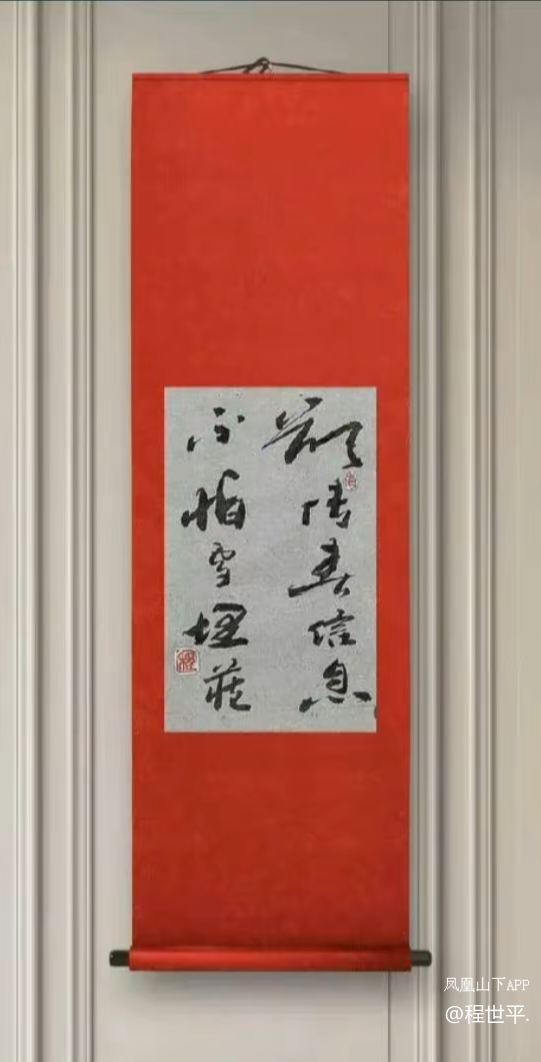 欲傳春信息
不怕雪埋藏
凤凰山下APP
@程世平.